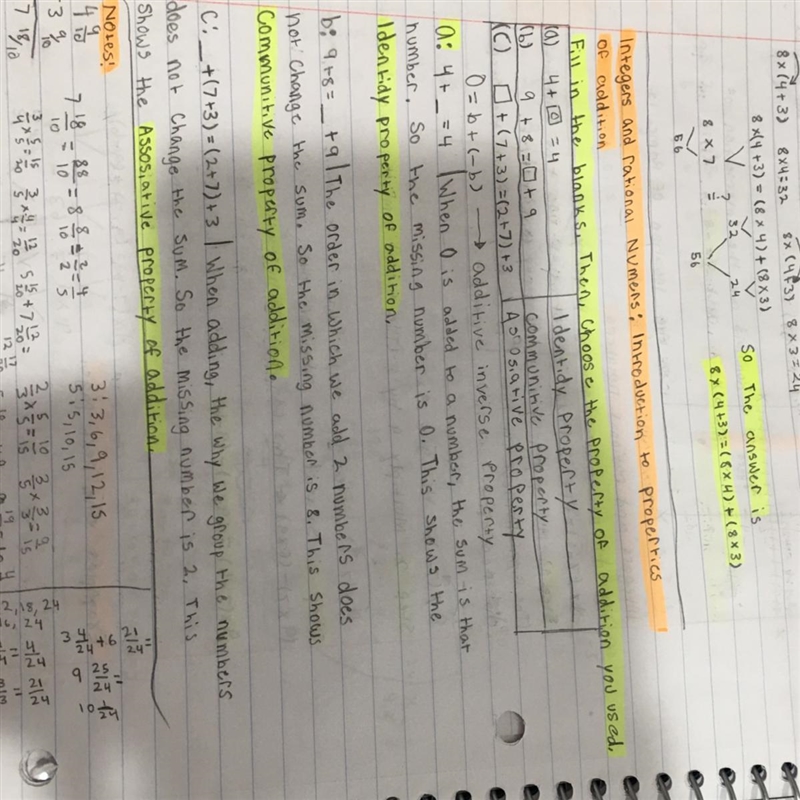 8×(4+3) 8×4=32 8×(4+3) 8×3=24
8×(4+3)=(8×4)+(8×3)
8×7 = ? 32 24
56 56
So The answer is
8×(4+3)=(8×4)+(8×3)
Integers and rational Numers: Introduction to properties
of addition
Fill in the blanks, Then, Choose the property of addition you used.
(a) 4+0=4 Identidy property
(b) 9+8=□+9 Communitive property
(C) □+(7+3)=(2+7)+3 Assosiative property
0=b+(-b) → additive inverse property
a: 4+_=4 | When 0 is added to a number, the sum is that
number. So the missing number is 0. This shows the
Identidy property of addition.
b: 9+8=_+9 | The order in which we add 2 numbers does
not change the sum. So the missing number is 8. This shows
Communitive property of addition.
C: _+(7+3)=(2+7)+3 | When adding, the why we group the numbers
does not change the sum. So the missing number is 2. This
shows the Assosiative property of addition.
Notes:
4 9/10
-3 9/10
7 18/10
7 18/10 = 88/10 = 8 8/10 ÷ 2/2 = 4/5
3/4 × 5/5 = 15/20 3/5 × 4/4 = 12/20 5 15/20 + 7 12/20 =
3: 3,6,9,12,15
5: 5,10,15
2/3 × 5/5 = 10/15 2/5 × 3/3 = 9/15
3 4/24 + 6 21/24 =
9 25/24 =
10 1/24